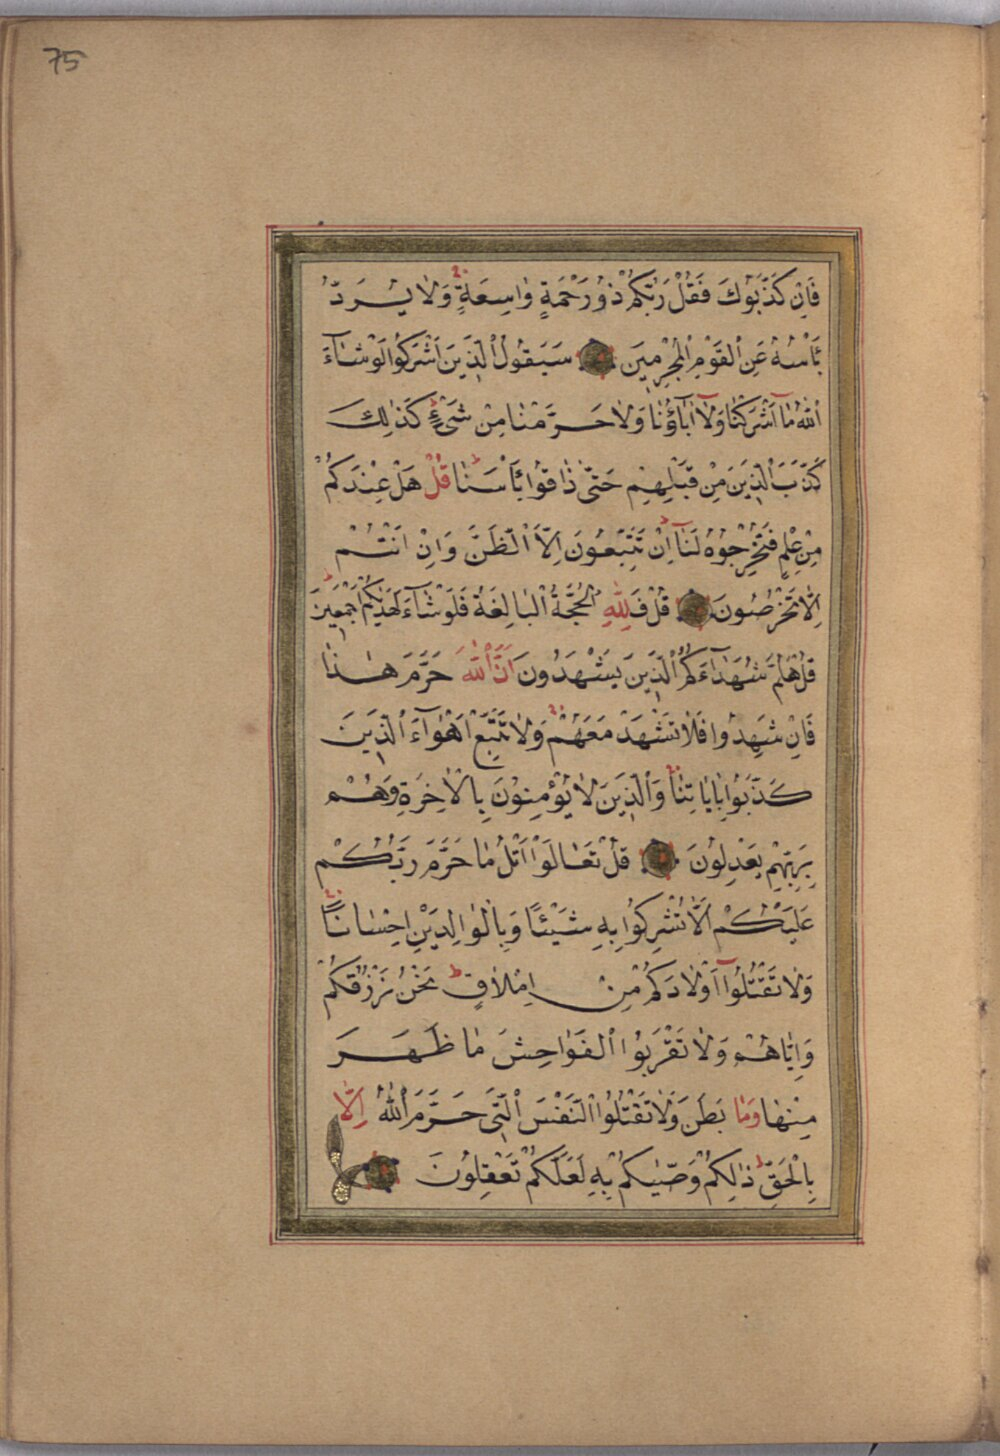 75
فَاِنْ كَذَّبُوكَ فَقُلْ رَبُّكُمْ ذُو رَحْمَةٍ وَاسِعَةٍ وَلَا يُرَدُّ
بَأْسُهُ عَنِ الْقَوْمِ الْمُجْرِمِينَ سَيَقُولُ الَّذِينَ اَشْرَكُوا لَوْ شَاءَ
اللّٰهُ مَا اَشْرَكْنَا وَلَا اٰبَاؤُنَا وَلَا حَرَّمْنَا مِنْ شَيْءٍ كَذٰلِكَ
كَذَّبَ الَّذِينَ مِنْ قَبْلِهِمْ حَتّٰى ذَاقُوا بَأْسَنَا قُلْ هَلْ عِنْدَكُمْ
مِنْ عِلْمٍ فَتُخْرِجُوهُ لَنَا اِنْ تَتَّبِعُونَ اِلَّا الظَّنَّ وَاِنْ اَنْتُمْ
اِلَّا تَخْرُصُونَ قُلْ فَلِلّٰهِ الْحُجَّةُ الْبَالِغَةُ فَلَوْ شَاءَ لَهَدٰيكُمْ اَجْمَعِينَ
قُلْ هَلُمَّ شُهَدَاءَكُمُ الَّذِينَ يَشْهَدُونَ اَنَّ اللّٰهَ حَرَّمَ هٰذَا
فَاِنْ شَهِدُوا فَلَا تَشْهَدْ مَعَهُمْ وَلَا تَتَّبِعْ اَهْوَاءَ الَّذِينَ
كَذَّبُوا بِاٰيَاتِنَا وَالَّذِينَ لَا يُؤْمِنُونَ بِالْاٰخِرَةِ وَهُمْ
بِرَبِّهِمْ يَعْدِلُونَ قُلْ تَعَالَوْا اَتْلُ مَا حَرَّمَ رَبُّكُمْ
عَلَيْكُمْ اَلَّا تُشْرِكُوا بِهِ شَيْئًا وَبِالْوَالِدَيْنِ اِحْسَانًا
وَلَا تَقْتُلُوا اَوْلَادَكُمْ مِنْ اِمْلَاقٍ نَحْنُ نَرْزُقُكُمْ
وَاِيَّاهُمْ وَلَا تَقْرَبُوا الْفَوَاحِشَ مَا ظَهَرَ
مِنْهَا وَمَا بَطَنَ وَلَا تَقْتُلُوا النَّفْسَ الَّتِي حَرَّمَ اللّٰهُ اِلَّا
بِالْحَقِّ ذٰلِكُمْ وَصّٰيكُمْ بِهِ لَعَلَّكُمْ تَعْقِلُونَ